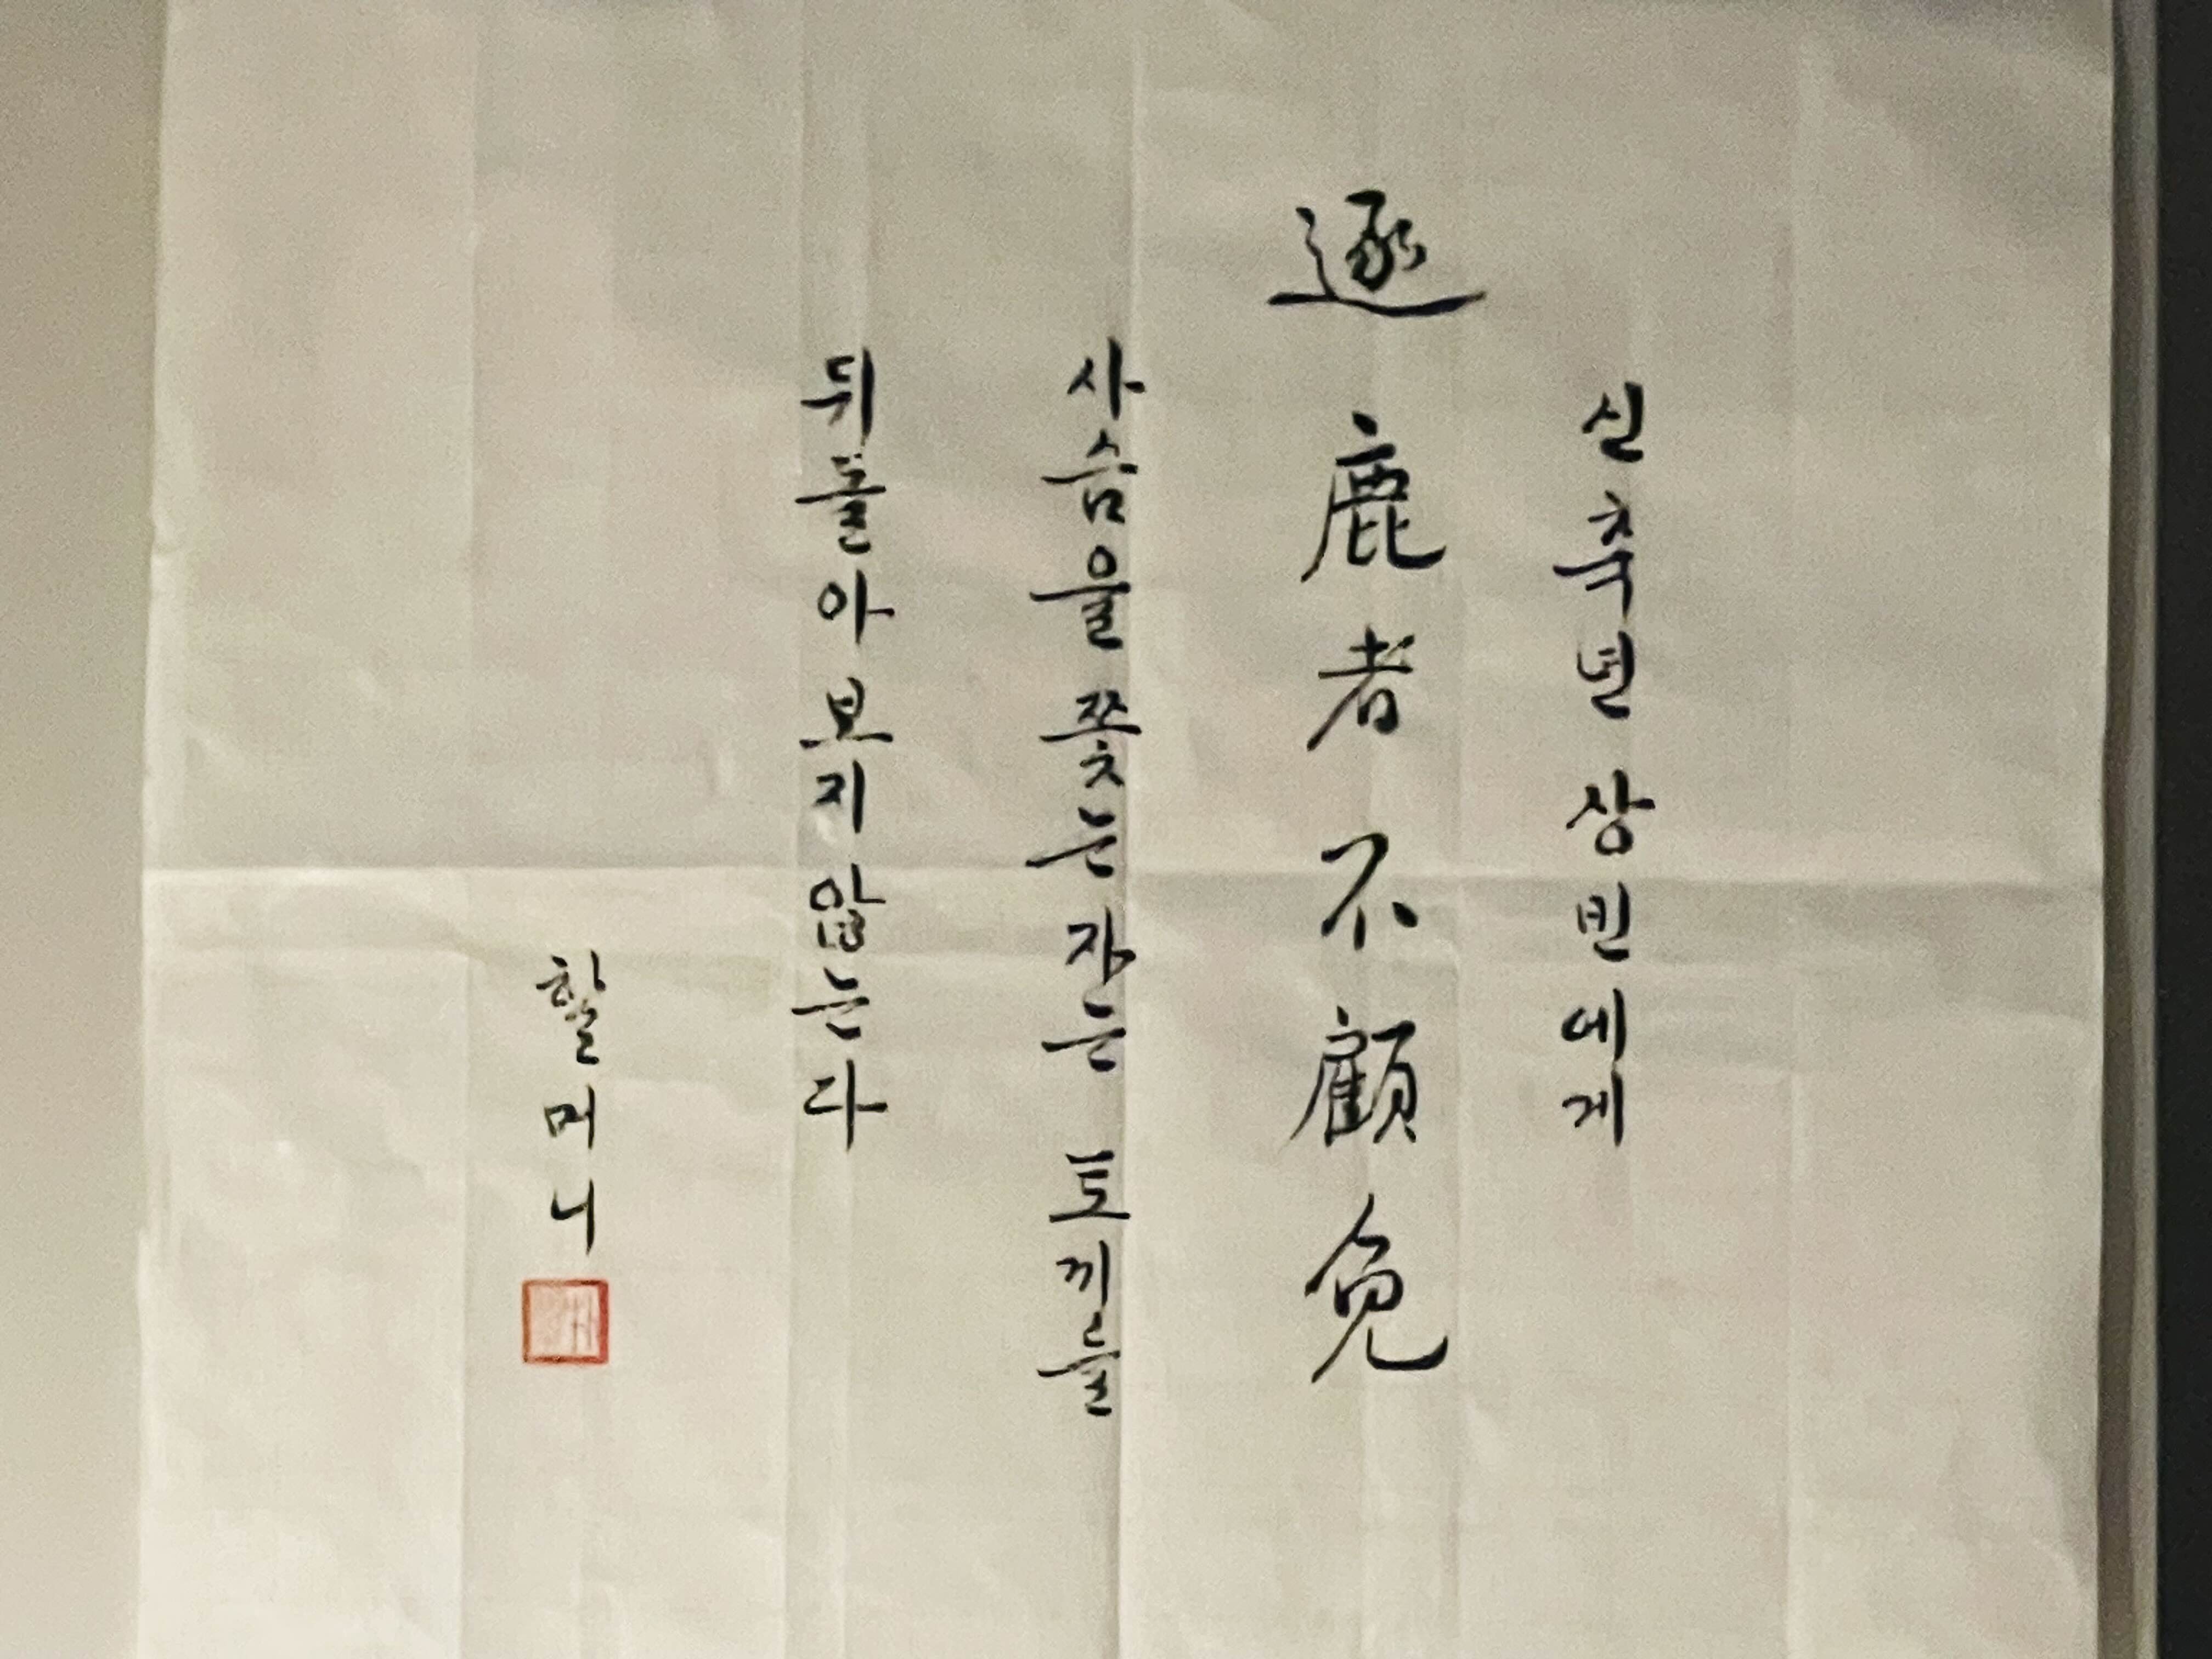 신축년 상빈에게
逐鹿者不顧兔
사슴을 쫓는 자는 토끼를
뒤돌아 보지 않는다
할머니